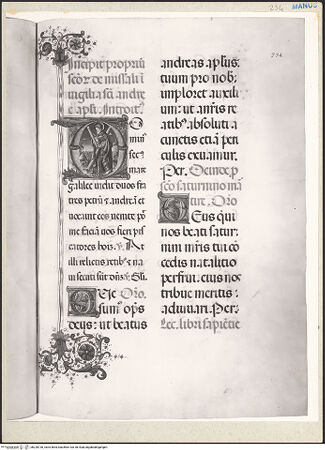 Incipit propriũ
scõr de missali ĩ
uigilia sci andre
e apłi. Introit⁹.
Do
min⁹
sec⁹
mare
galilee uidit duos fra
tres petrũ ⁊ andreã et
uocauit eos uenite põ
me faciã uos fieri pis
catores hoiũ. At
illi relictis retib⁹ ⁊ na
ui secuti sũt
Oro.
sumus ops
deus: ut beatus
andreas apłus:
tuum pro nob
imploret auxili
um: ut a nr̃is re
atib⁹ absoluti a
cunctis etiã peri
culis exuamur.
Per.
sco saturnino mar
tire. Oro
Deus qui
nos beati satur
nini mr̃is tui cõ
cedis natalitio
perfrui. eius nos
tribue meritis:
adiuuari. Per.
Lec. libri sapiẽtie
236
MANUS